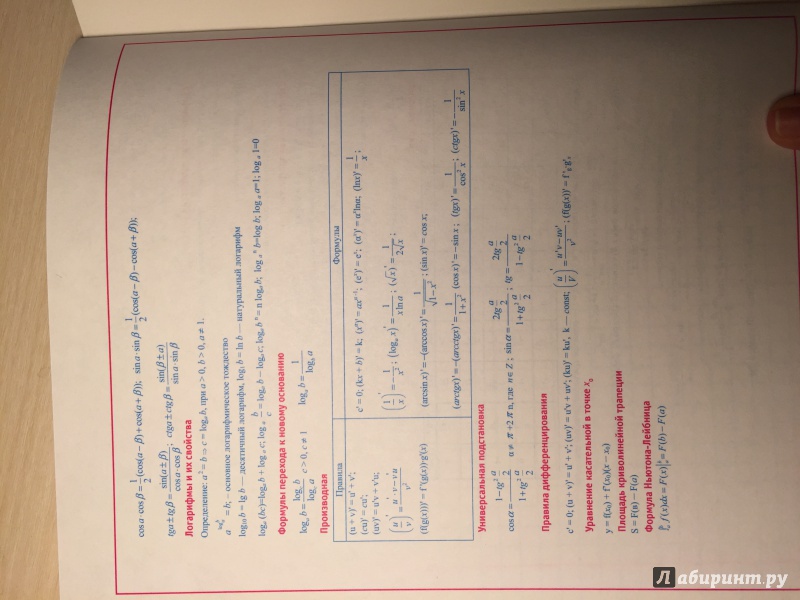 cosα·cosβ = 1/2 (cos(α−β)+cos(α+β)); sinα·sinβ = 1/2 (cos(α−β)−cos(α+β));
tgα±tgβ = sin(α±β)/cosα·cosβ; ctgα±ctgβ = sin(β±α)/sinα·sinβ
Логарифмы и их свойства
Определение: a^c = b ⇒ c = logₐb, при a > 0, b > 0, a ≠ 1.
a^(logₐb) = b; – основное логарифмическое тождество
log₁₀ b = lg b — десятичный логарифм, logₗ b = ln b — натуральный логарифм
logₐ (bc)=logₐ b + logₐ c; logₐ b/c = logₐ b − logₐ c; logₐ bⁿ = n logₐ b;
Формулы перехода к новому основанию
logₐ b = log_c b/log_c a c > 0, c ≠ 1 logₐ b = 1/log_b a
Производная
Правила Формулы
(u + v)' = u' + v'; c' = 0; (kx + b)' = k; (xᵃ)' = axᵃ⁻¹; (eˣ)' = eˣ; (aˣ)' = aˣlna; (lnx)' = 1/x;
(cu)' = cu';
(uv)' = u'v + v'u; (1/x)' = −1/x²; (logₐ x)' = 1/(x ln a); (√x)' = 1/(2√x);
(u/v)' = (u'·v−v'·u)/v² (arcsin x)' = −(arccos x)' = 1/√(1−x²); (sin x)' = cos x;
(f(g(x)))' = f'(g(x))·g'(x) (arctgx)' = −(arcctgx)' = 1/(1+x²) (cos x)' = −sin x; (tgx)' = 1/cos² x; (ctgx)' = −1/sin² x
Универсальная подстановка
cosα = (1−tg² a/2)/(1+tg² a/2) α ≠ π+2πn, где n∈Z; sinα = (2tg a/2)/(1+tg² a/2); tg = (2tg a/2)/(1−tg² a/2)
Правила дифференцирования
c' = 0; (u + v)' = u' + v'; (uv)' = u'v + uv'; (ku)' = ku', k — const; (u/v)' = (u'v−uv')/v²; (f(g(x))' = f'g'g',
Уравнение касательной в точке x₀
y = f(x₀) + f'(x₀)(x − x₀)
Площадь криволинейной трапеции
S = F(в) − F(a)
Формула Ньютона-Лейбница
∫ₐᵇ f(x)dx = F(x)|ₐᵇ = F(b) − F(a)
Лабиринт.ру